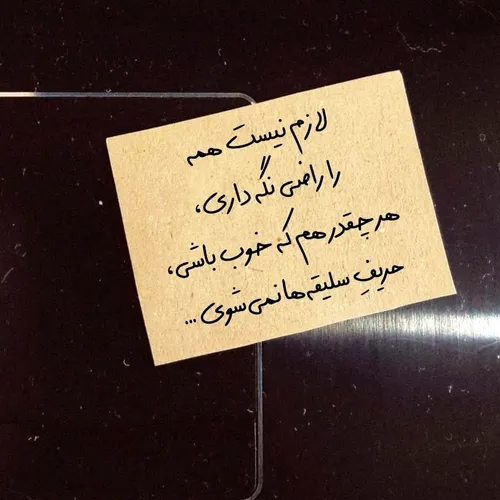 لازم نیست همه
را راضی نگه داری،
هر چقدر هم که خوب باشی،
حریفِ سلیقه ها نمی شوی ...